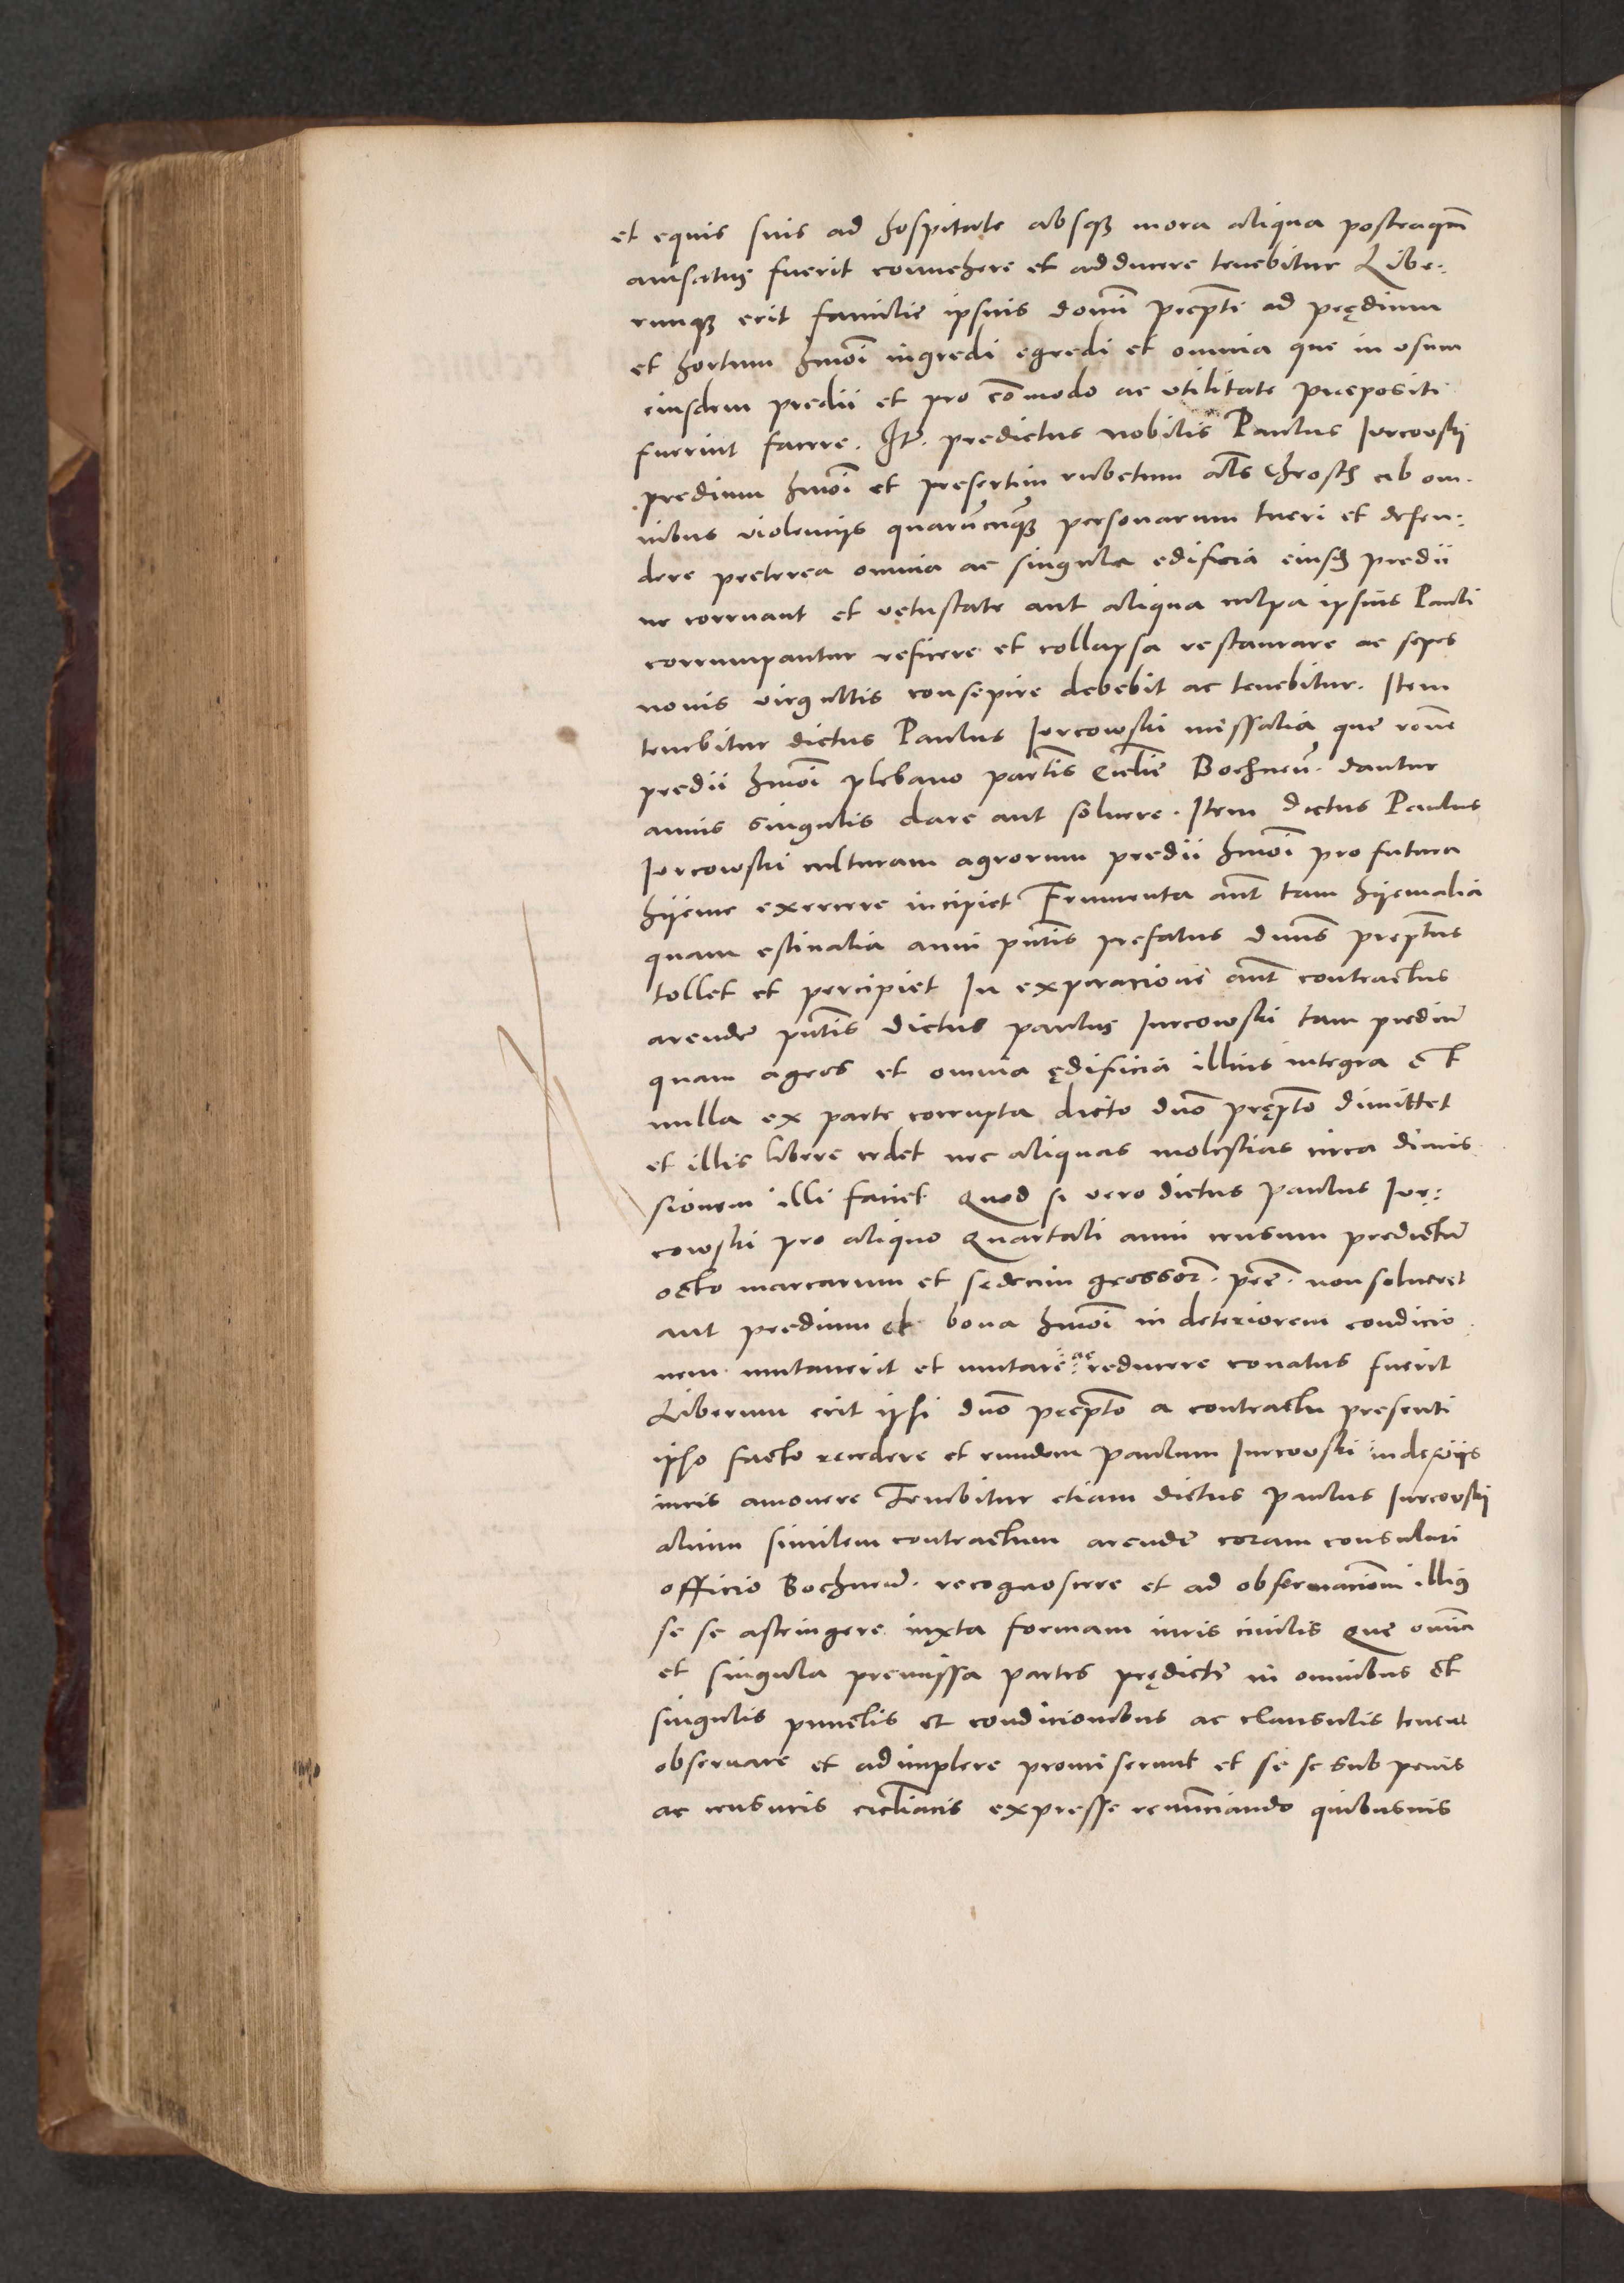 et equis suis ad hospitale absq3 mora aliqua posteaqm̃
auisatus fuerit conuehere et adducere tenebitur Libe:
rumq3 erit familie ipsius domi prepti ad prędium
et hortum hmoi ingredi egredi et omnia que in usum
eiusdem predii et pro cõmodo ac utilitate prepositi
fuerint facere. It. predictus nobilis Paulus Jurcovski
predium hmoi et presertim rubetum als chrosth ab om
nibus violentiis quarũcunq3 personarum tueri et defen:
dere preterea omnia ac singula edificia eiusd predii
ne corruant et vetustate aut aliqua culpa ipsius Pauli
corrumpantur reficere et collapsa restaurare ac sepes
nouis virgultis consepire debebit ac tenebitur. Item
tenebitur dictus Paulus Jurcowski missalia que rone
predii hmoi plebano partis Ecclie Bochneñ. dantur
annis singulis dare aut soluere. Item dictus Paulus
Jurcowski culturam agrorum predii hmoi pro futura
hijeme exercere incipiet Frumenta aut tam hijemalia
quam estiualia anni pntis prefatus dnus preptus
tollet et percipiet In expiracione aut contractus
arende pntis dictus paulus Jurcowski tam prediũ
quam agros et omnia ędificia illius integra et
nulla ex parte corrupta dicto dno prępto dimittet
et illis libere cedet nec aliquas molestias circa dimis
sionem illi faciet Quod si vero dictus Paulus Jur:
cowski pro aliquo Quartali anni censum predictũ
octo marcarum et sedecim grossor. pte. non solueret
aut predium et bona hmoi in deteriorem condicio
nem mutauerit et mutare ac reducere conatus fuerit
Liberum erit ipsi dno prepto a contractu presenti
ipso facto recedere et eundem Paulum Jurcovski
iuris amouere Tenebitur etiam dictus Paulus Jurcovski
alium similem contractum arende coram consulari
officio Bochneñ. recognoscere et ad obseruacionem illius
se se astringere iuxta formam iuris ciuilis Que omnia
et singula premissa partes prędicte in omnibus et
singulis punctis et condicionibus ac clausulis tenere
obseruare et adimplere promiserunt et se se sub penis
ac censuris eccliacis expresse renunciando quibusuis